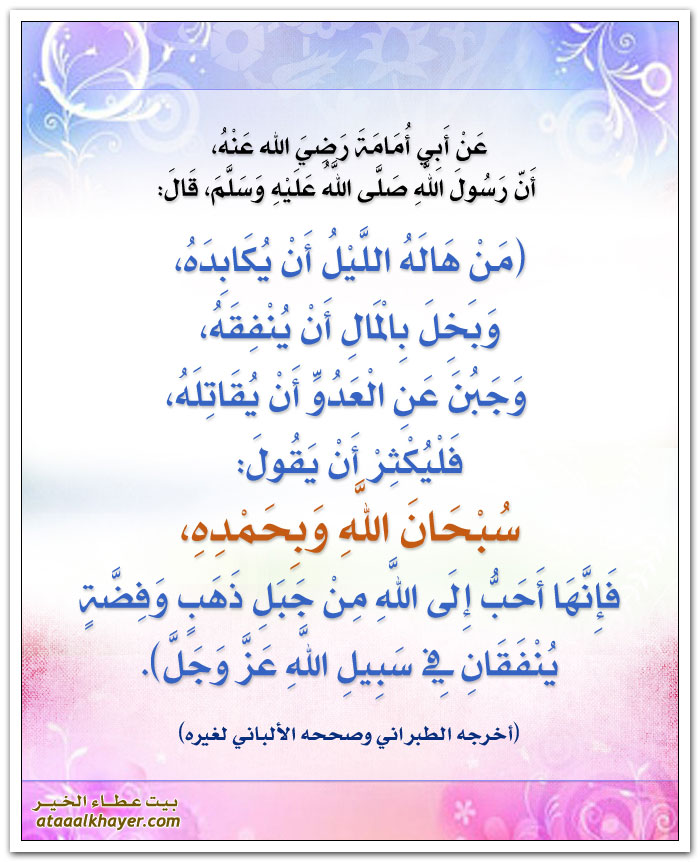 عَنْ أَبِي أُمَامَةَ رَضِيَ الله عَنْهُ،
أَنّ رَسُولَ اللَّهِ صَلَّى اللَّهُ عَلَيْهِ وَسَلَّمَ، قَالَ:
(مَنْ هَالَهُ اللَّيْلُ أَنْ يُكَابِدَهُ،
وَبَخِلَ بِالْمَالِ أَنْ يُنْفِقَهُ،
وَجَبُنَ عَنِ الْعَدُوِّ أَنْ يُقَاتِلَهُ،
فَلْيُكْثِرْ أَنْ يَقُولَ:
سُبْحَانَ اللَّهِ وَبِحَمْدِهِ،
فَإِنَّهَا أَحَبُّ إِلَى اللَّهِ مِنْ جَبَلِ ذَهَبٍ وَفِضَّةٍ
يُنْفَقَانِ فِي سَبِيلِ اللَّهِ عَزَّ وَجَلَّ).
(أخرجه الطبراني وصححه الألباني لغيره)
بيت عطاء الخير
ataaalkhayer.com